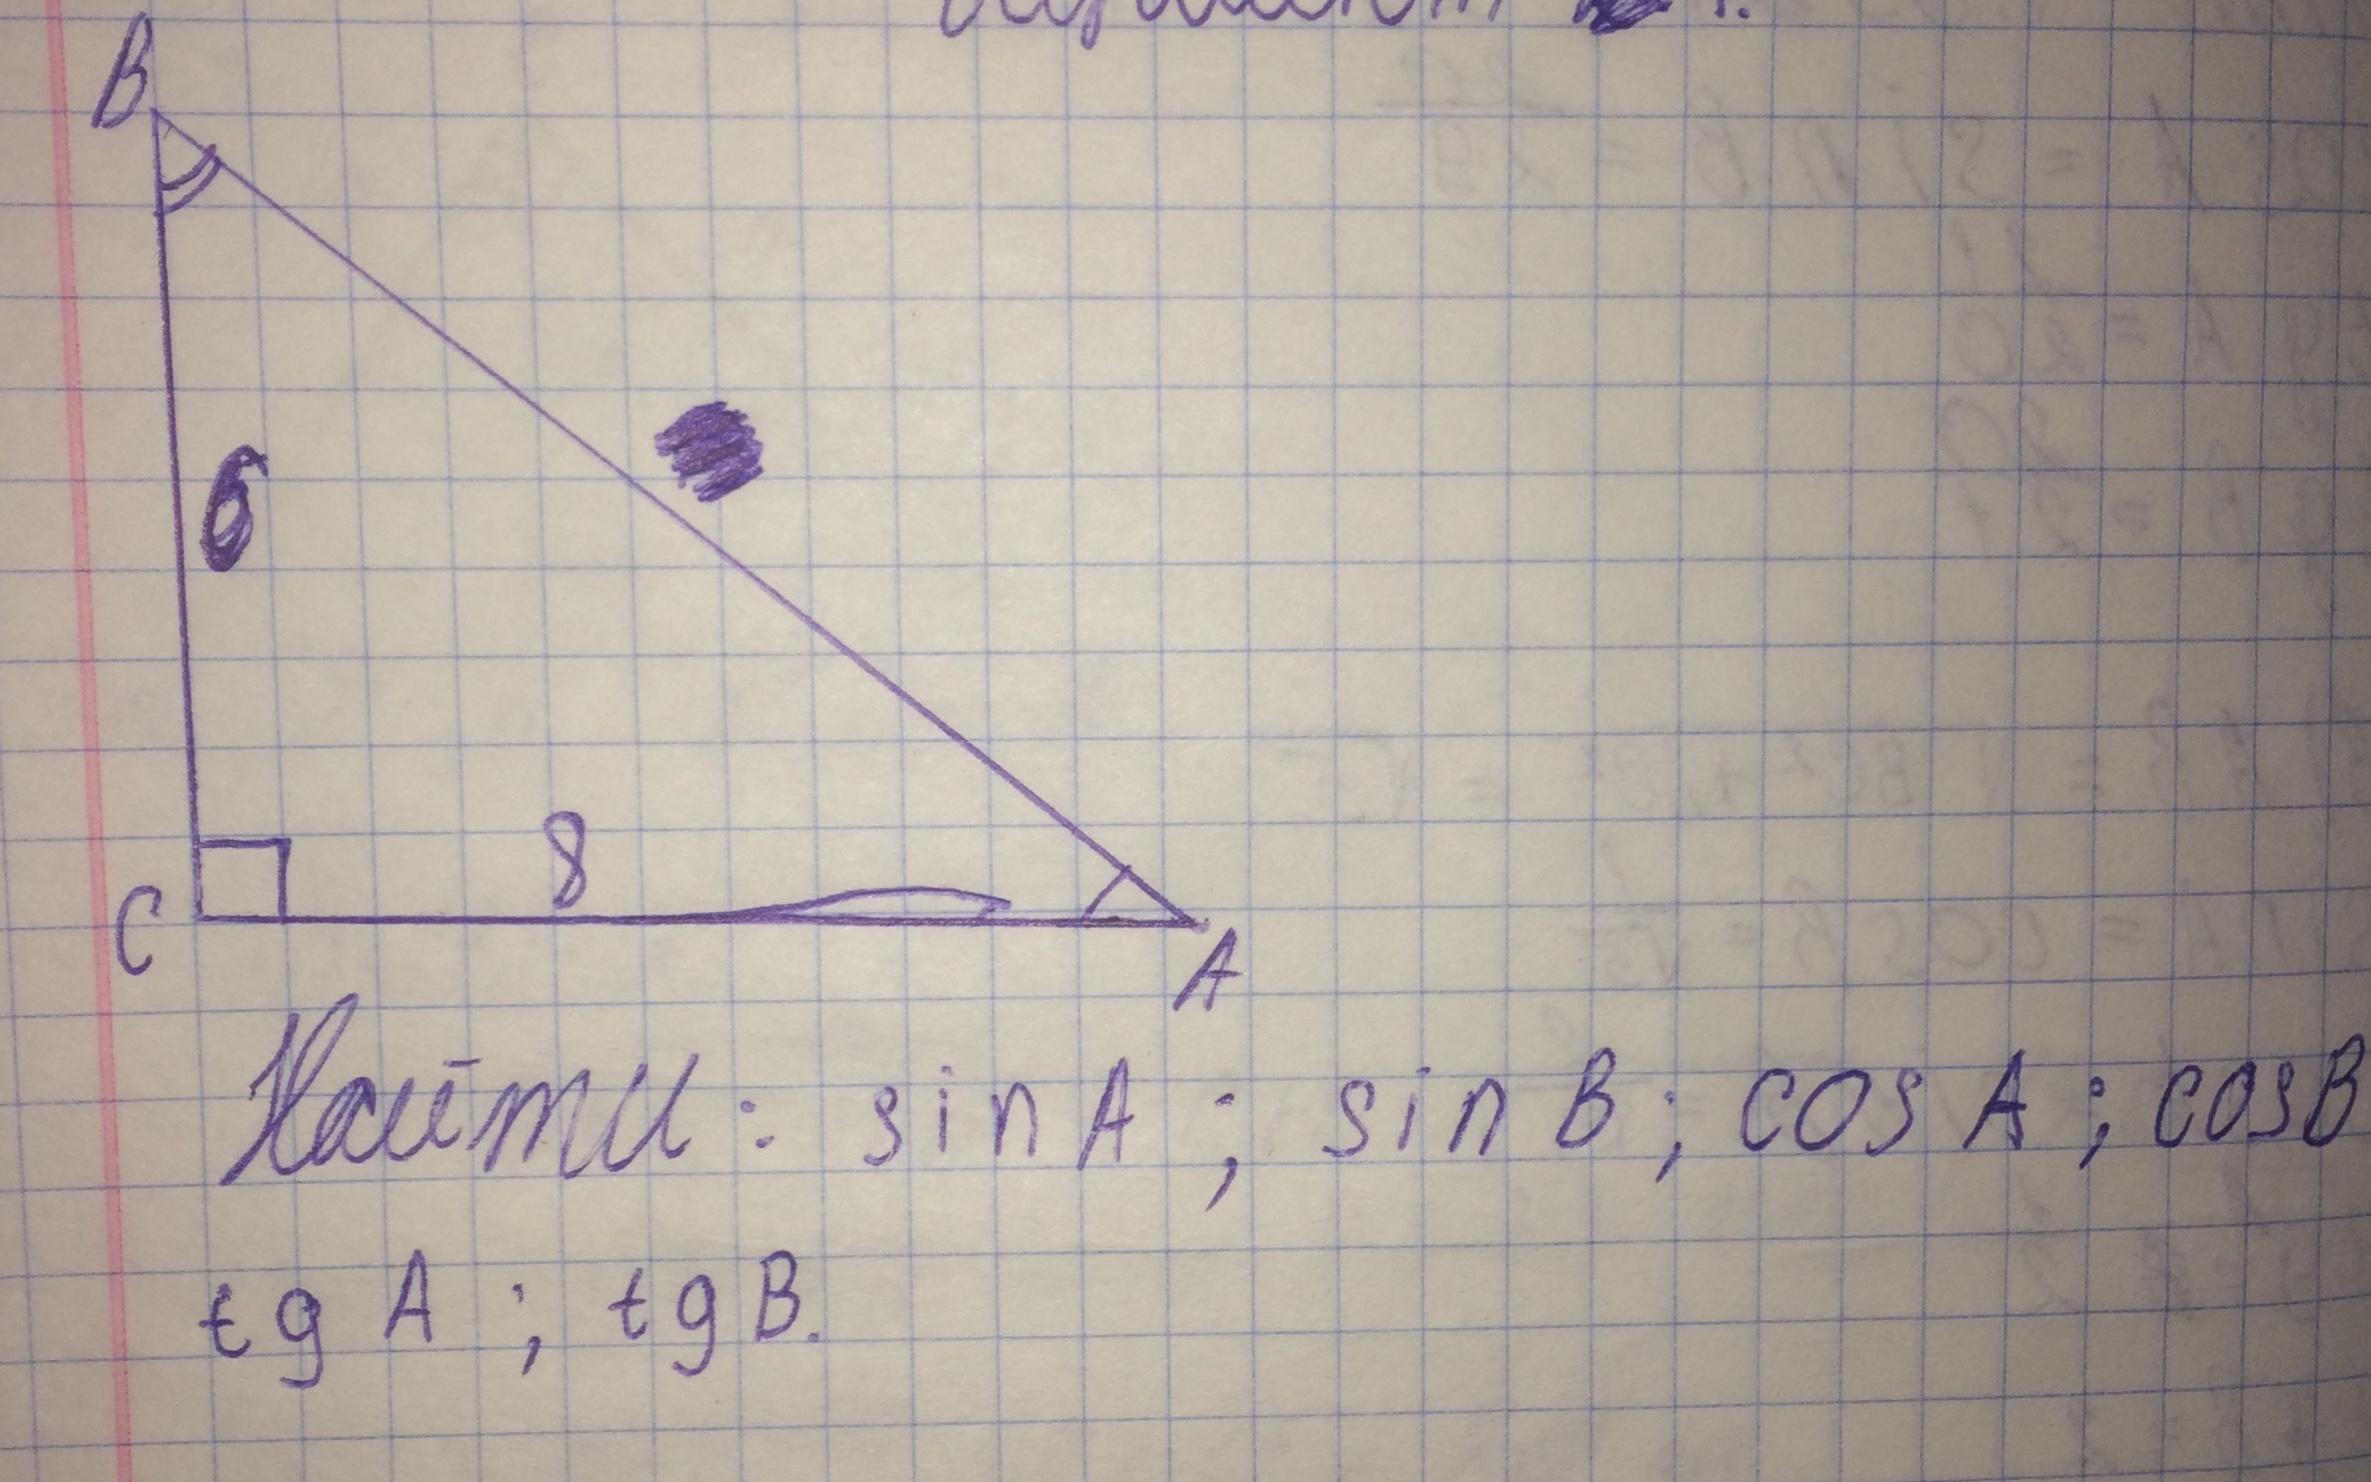 B
6
8
C
A
Найти: sin A ; sin B ; cos A ; cos B
tg A ; tg B.